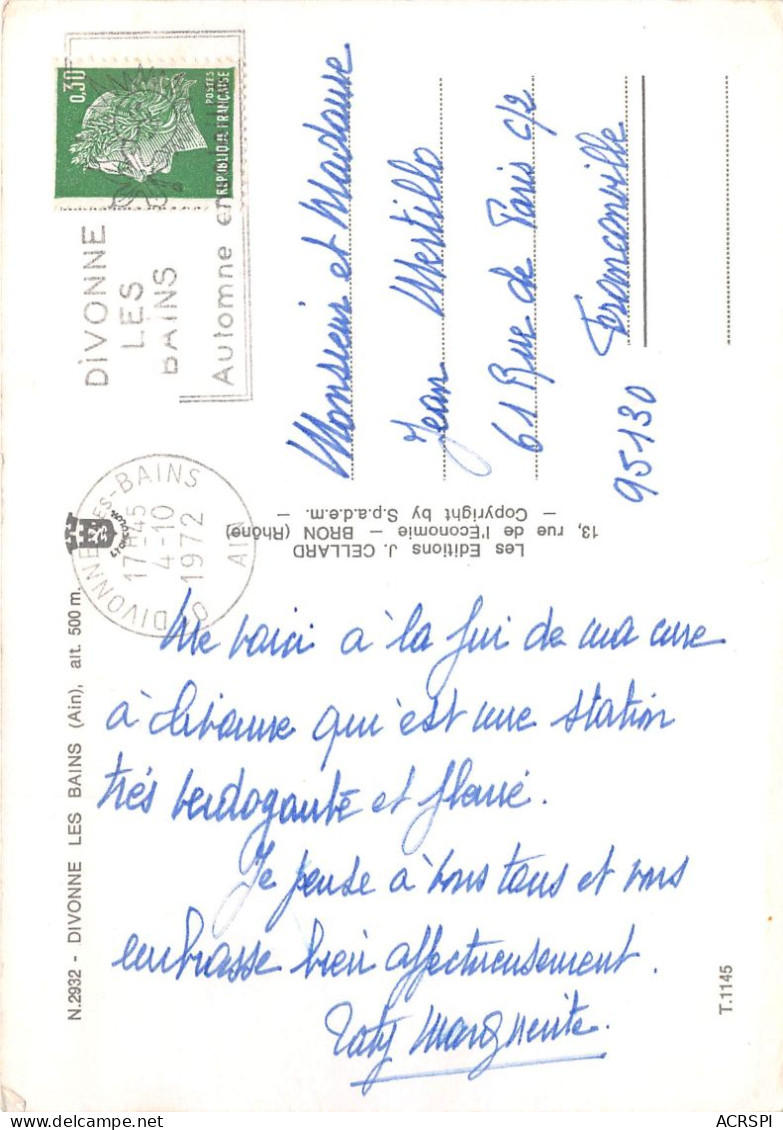 0,30
POSTES
REPUBLIQUE FRANÇAISE
DIVONNE
LES
BAINS
Automne en
DIVONNE-LES-BAINS
17H45
4-10
1972
AIN
Monsieur et Madame
Jean Mertillo
61 Rue de Paris c/2
Franconville
95130
Les Editions J. CELLARD
13, rue de l'Economie - BRON (Rhône)
- Copyright by S.p.a.d.e.m. -
N.2932 - DIVONNE LES BAINS (Ain), alt. 500 m.
Me voici à la fin de ma cure
à divonne qui est une station
très verdoyante et fleurie.
Je pense à vous tous et vous
embrasse bien affectueusement.
Taty Marguerite.
T.1145
ACRSPI